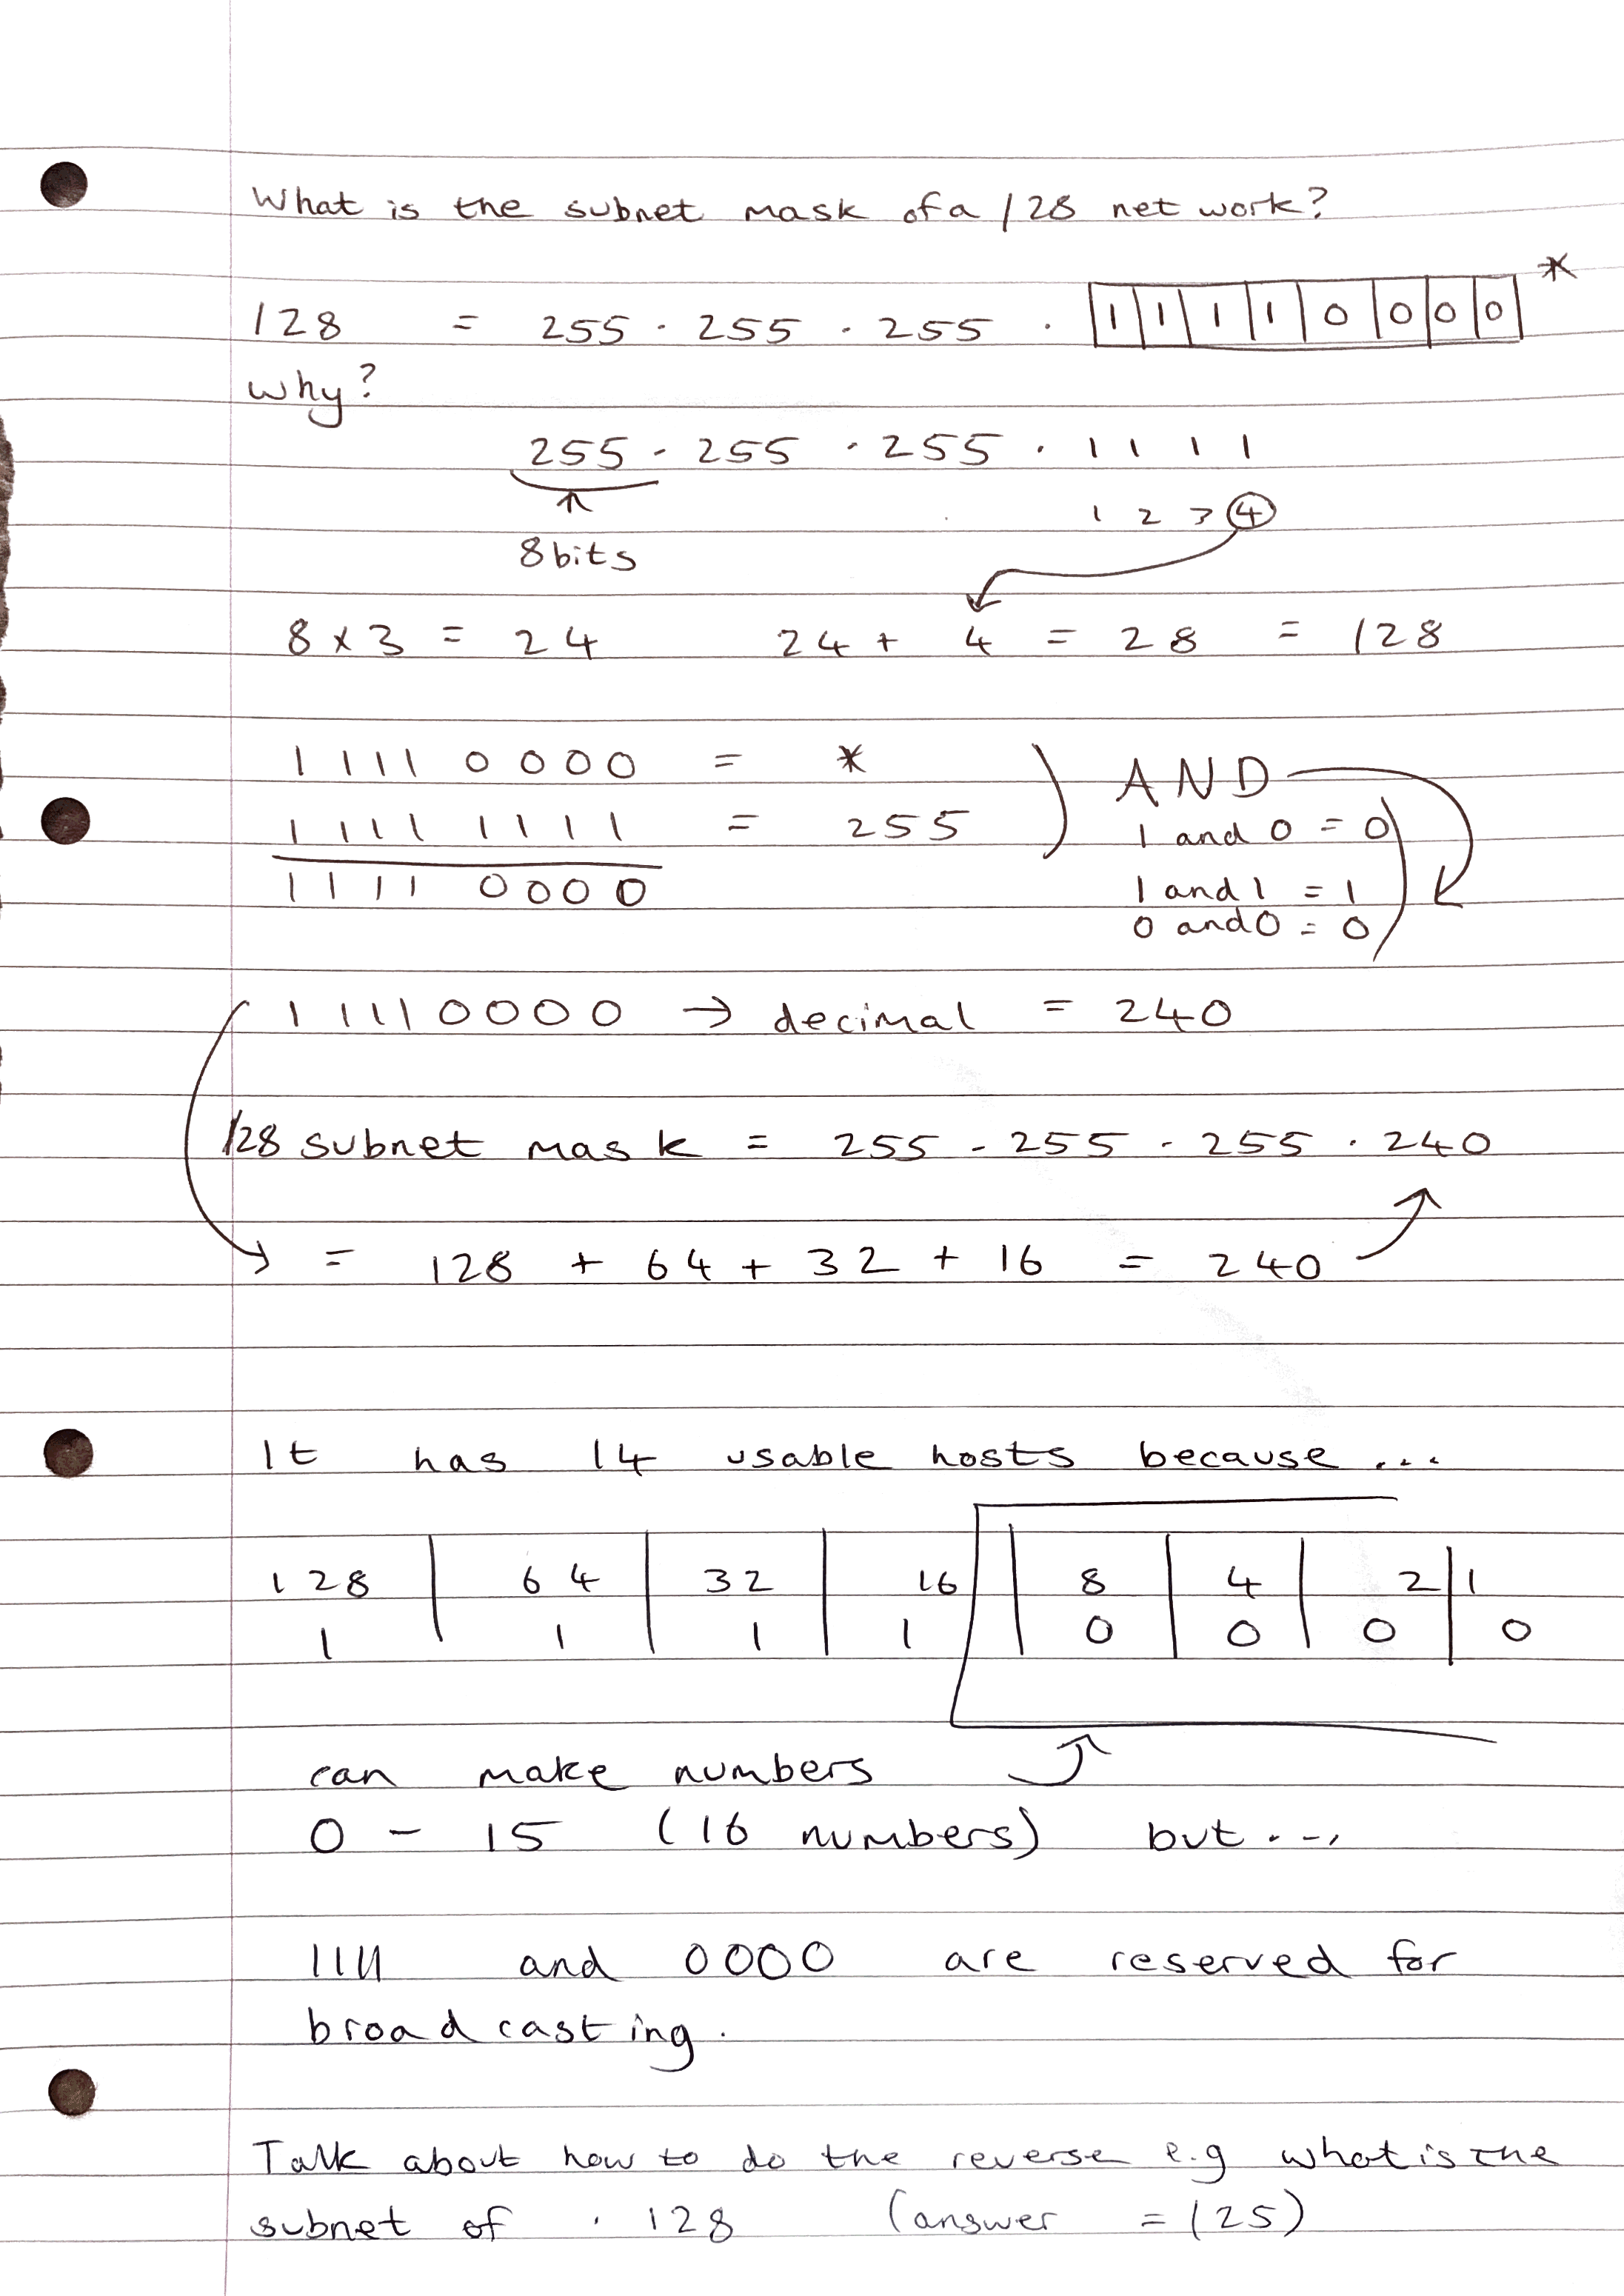 What is the subnet mask of a /28 network?
/28 = 255 . 255 . 255 . 1 1 1 1 0 0 0 0 *
why?
255 . 255 . 255 . 1 1 1 1
1 2 3 4
8 bits
8 x 3 = 24 24 + 4 = 28 = /28
1 1 1 1 0 0 0 0 = *
1 1 1 1 1 1 1 1 = 255
1 1 1 1 0 0 0 0
AND
1 and 0 = 0
1 and 1 = 1
0 and 0 = 0
1 1 1 1 0 0 0 0 → decimal = 240
/28 subnet mask = 255 . 255 . 255 . 240
= 128 + 64 + 32 + 16 = 240
It has 14 usable hosts because...
128 64 32 16 8 4 2 1
1 1 1 1 0 0 0 0
can make numbers
0 - 15 (16 numbers) but...
1111 and 0000 are reserved for
broadcasting.
Talk about how to do the reverse e.g what is the
subnet of . 128 (answer = /25)